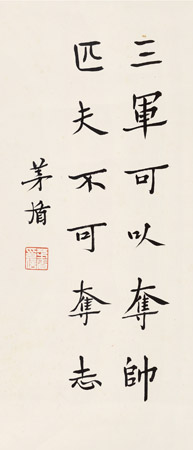 三軍可以奪帥
匹夫不可奪志
茅盾